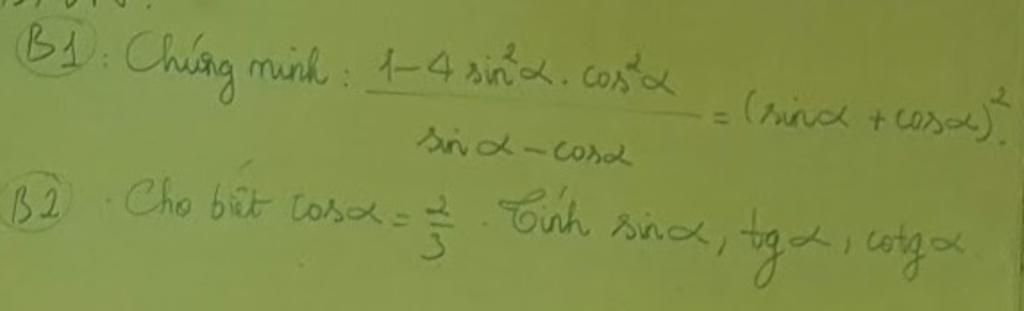 B1: Chứng minh: (1-4 sin²α . cos²α)/(sin α - cosα) = (sinα + cosα)².
B2 Cho biết cosα = 2/3 . Tính sinα, tgα, cotgα